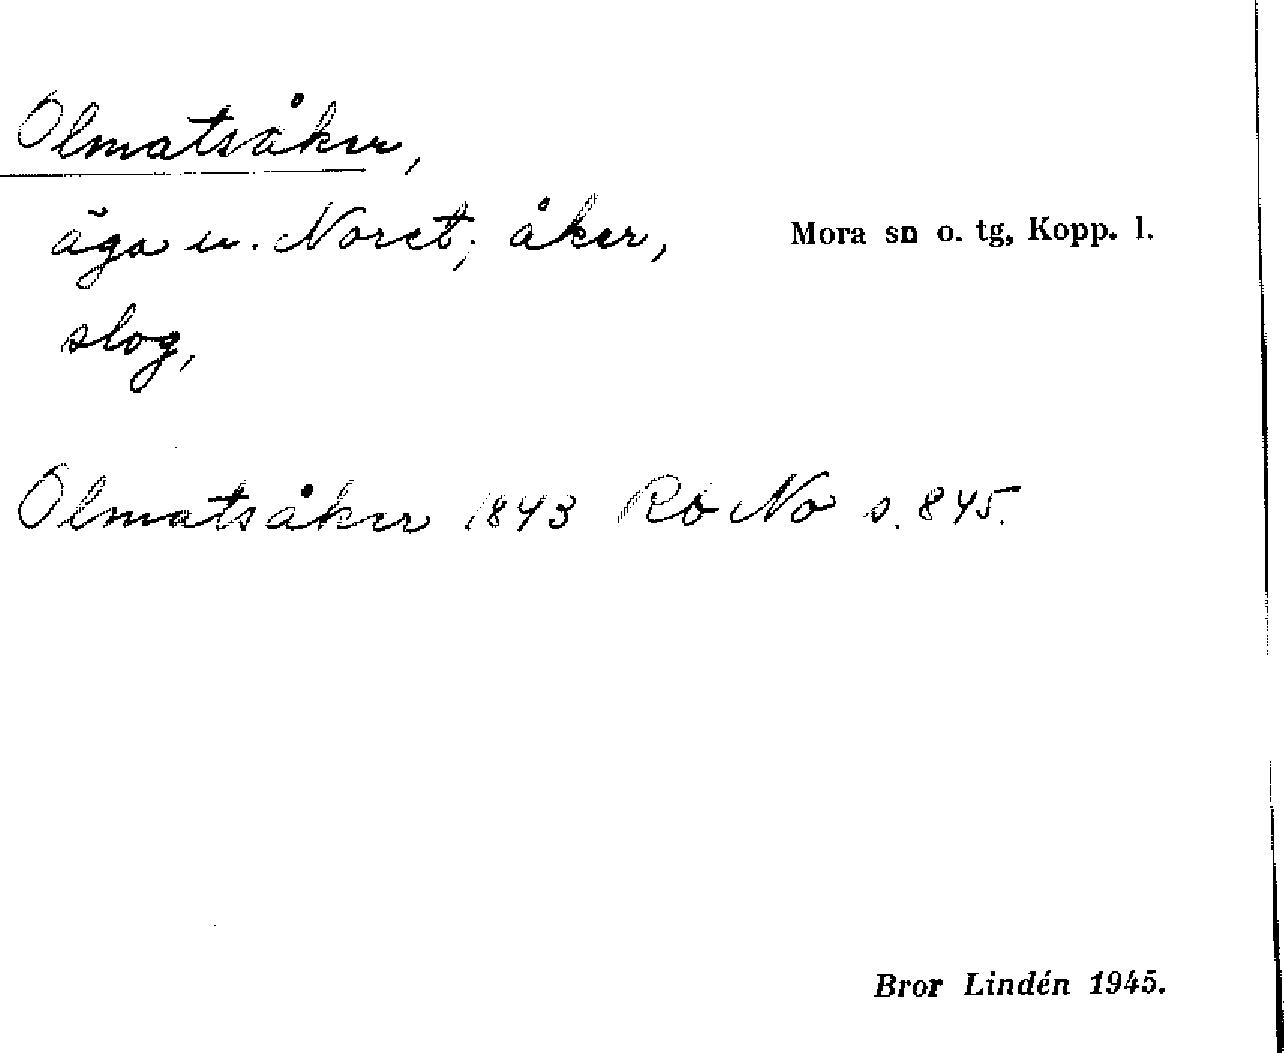 Olmatsåker,
äga u. Noret; åker,
slog,
Mora sn o. tg, Kopp. l.
Olmatsåker 1843 Rö No s. 845.
Bror Lindén 1945.